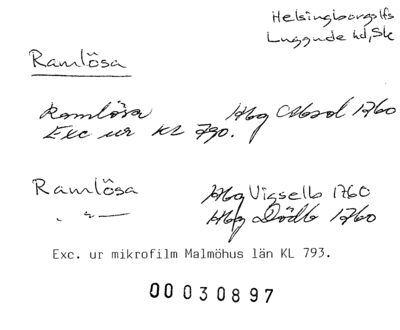 Helsingborgs lfs
Luggude hd, Sk
Ramlösa
Ramlösa Hbg Absol 1760
Exc ur KL 790.
Ramlösa Hbg Vigselb 1760
- " - Hbg Dödb 1760
Exc. ur mikrofilm Malmöhus län KL 793.
00 030897